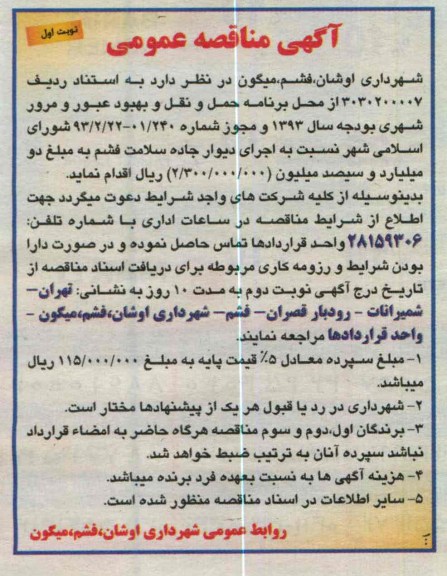 نوبت اول
آگهی مناقصه عمومی
شهرداری اوشان،فشم،میگون در نظر دارد به استناد ردیف
۳۰۳۰۲۰۰۰۰۷ از محل برنامه حمل و نقل و بهبود عبور و مرور
شهری بودجه سال ۱۳۹۳ و مجوز شماره ۰۱/۲۴۰-۹۳/۲/۲۲ شورای
اسلامی شهر نسبت به اجرای دیوار جاده سلامت فشم به مبلغ دو
میلیارد و سیصد میلیون (۲/۳۰۰/۰۰۰/۰۰۰) ریال اقدام نماید.
بدینوسیله از کلیه شرکت های واجد شرایط دعوت میگردد جهت
اطلاع از شرایط مناقصه در ساعات اداری با شماره تلفن:
۲۸۱۵۹۳۰۶ واحد قراردادها تماس حاصل نموده و در صورت دارا
بودن شرایط و رزومه کاری مربوطه برای دریافت اسناد مناقصه از
تاریخ درج آگهی نوبت دوم به مدت ۱۰ روز به نشانی: تهران–
شمیرانات - رودبار قصران– فشم– شهرداری اوشان،فشم،میگون -
واحد قراردادها مراجعه نمایند.
۱- مبلغ سپرده معادل ۵٪ قیمت پایه به مبلغ ۱۱۵/۰۰۰/۰۰۰ ریال
میباشد.
۲- شهرداری در رد یا قبول هر یک از پیشنهادها مختار است.
۳- برندگان اول،دوم و سوم مناقصه هرگاه حاضر به امضاء قرارداد
نباشد سپرده آنان به ترتیب ضبط خواهد شد.
۴- هزینه آگهی ها به نسبت بعهده فرد برنده میباشد.
۵- سایر اطلاعات در اسناد مناقصه منظور شده است.
روابط عمومی شهرداری اوشان،فشم،میگون